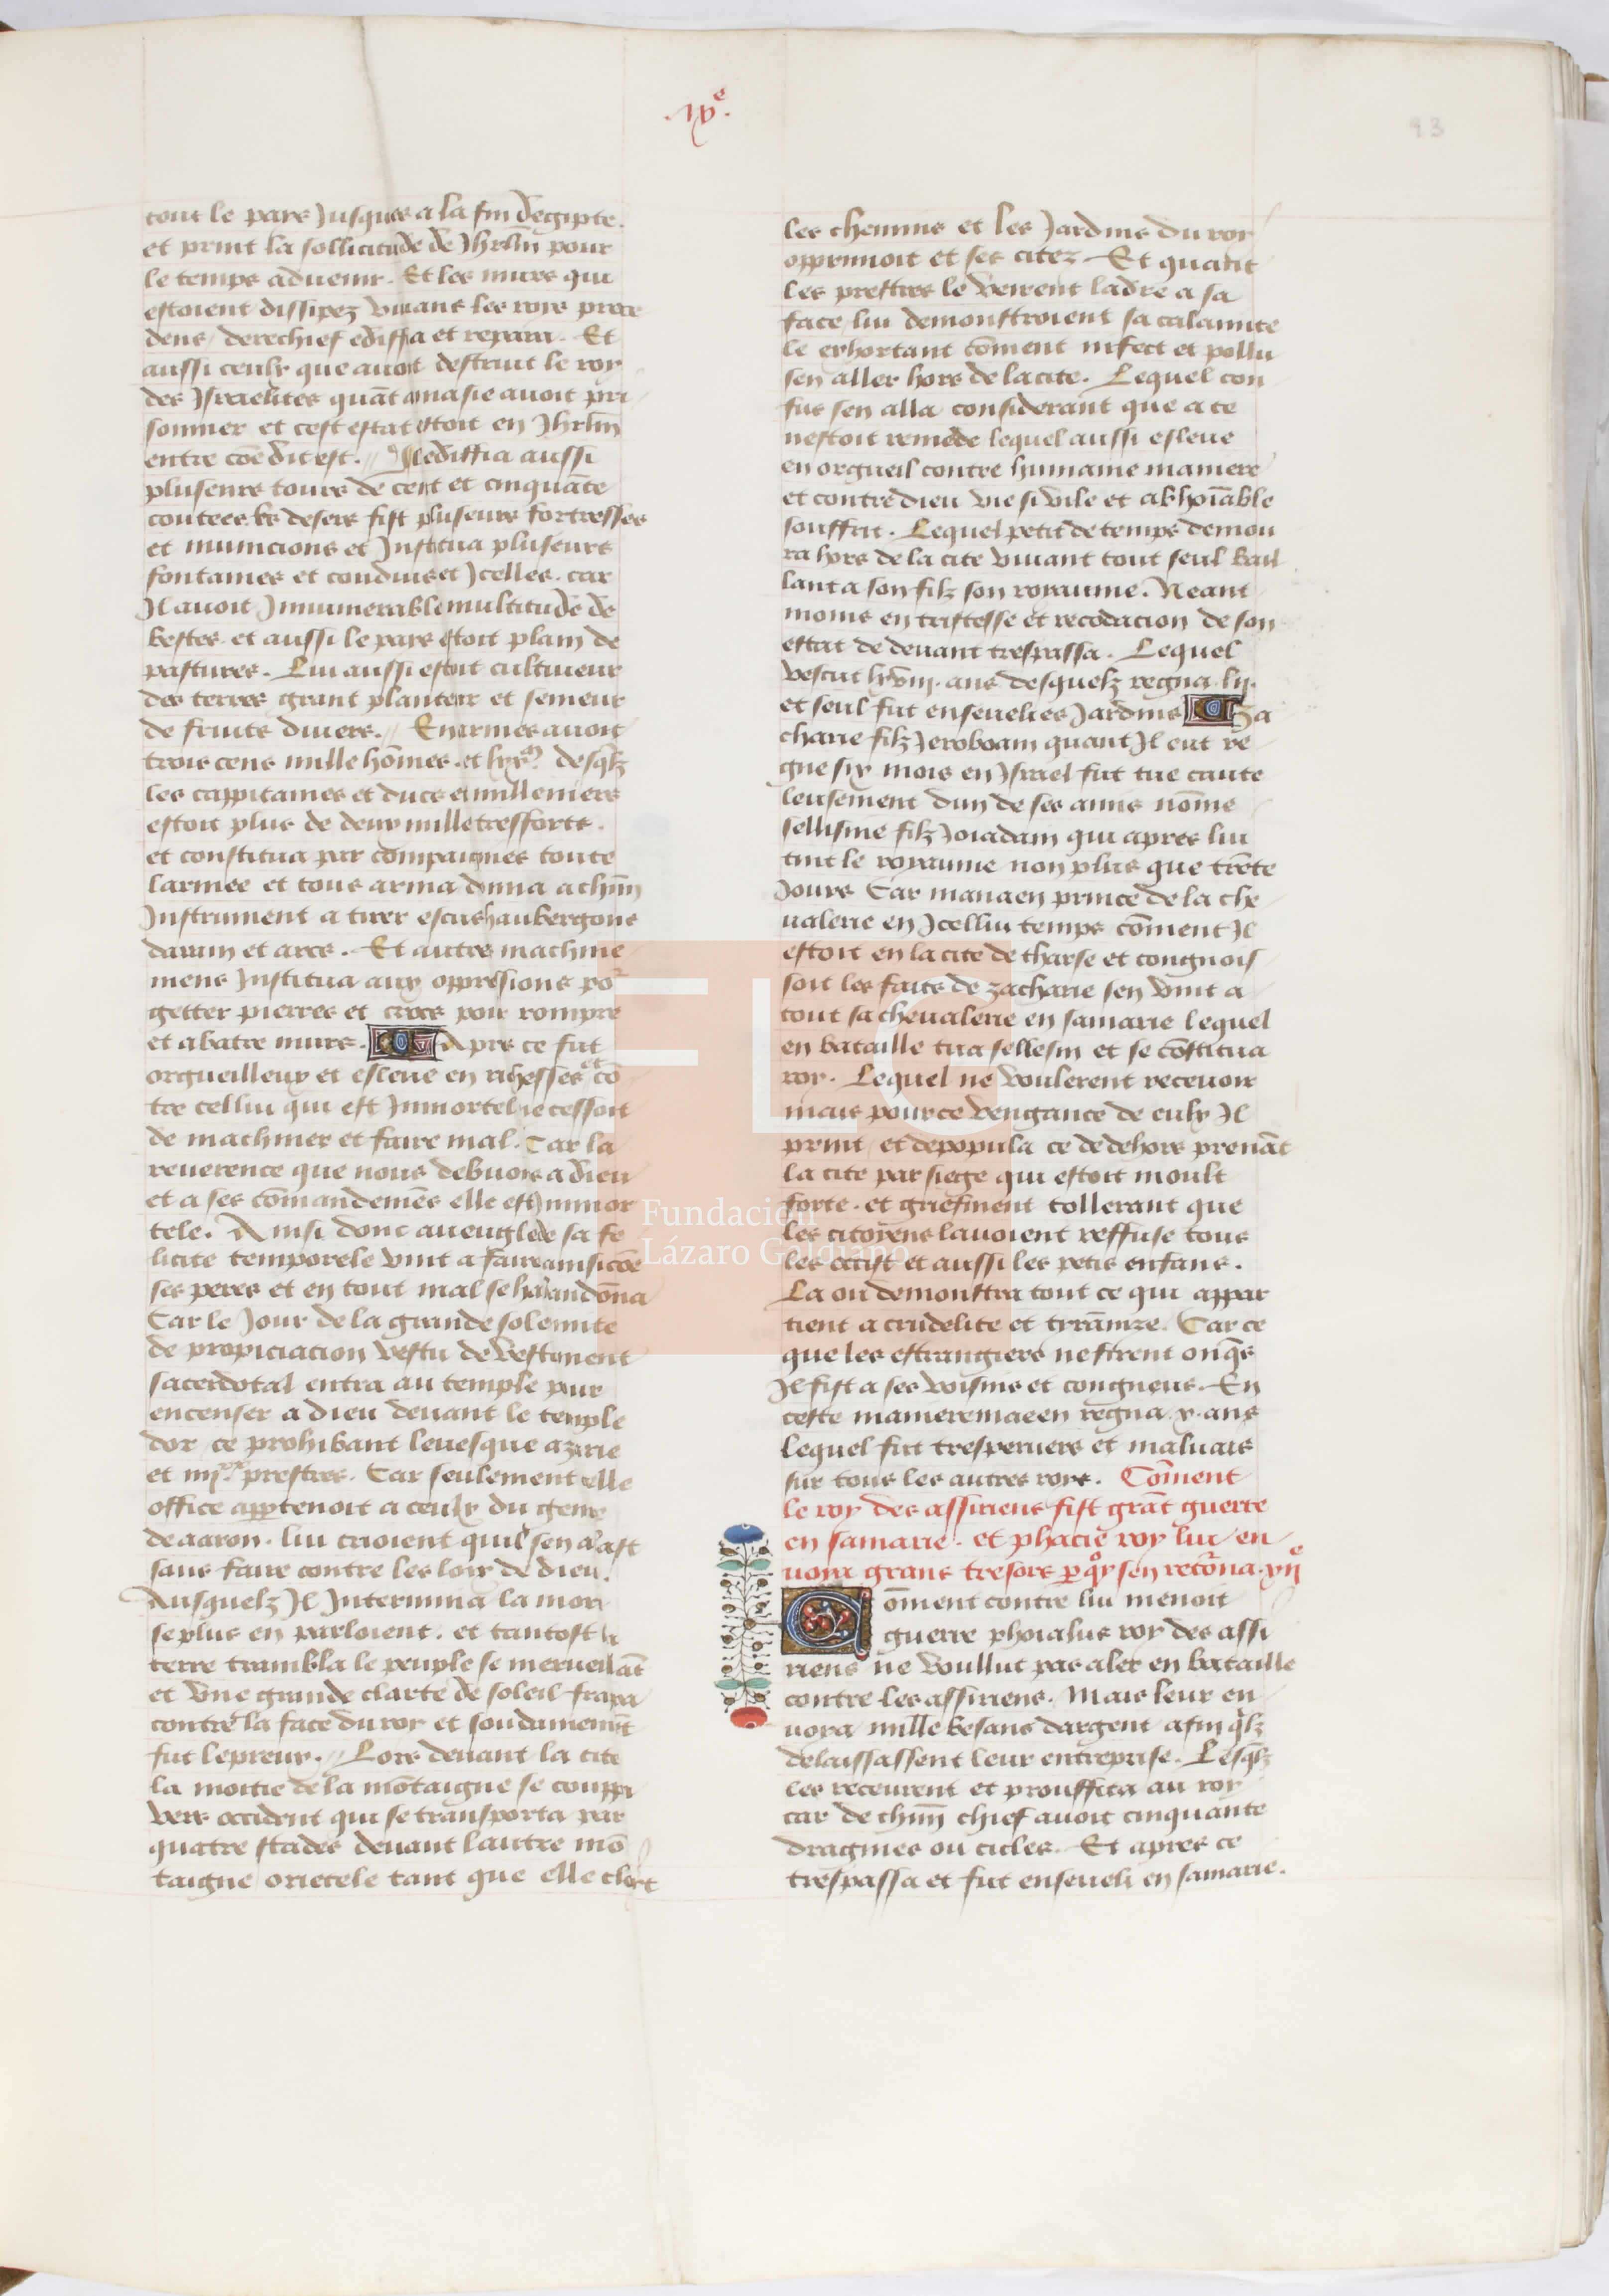 .ixe.
93
tout le pays Jusques a la fin degipte.
et print la sollicitude de Jhrlm pour
le temps aduenir. Et les murs qui
estoient dissipez viuans les roys prece
dens / derechief ediffia et repara. Et
aussi ceulx que auoit destruit le roy
des Israelites quāt amasie auoit pri
sonnier et cest estat estoit en Jhrlm
entre cōe dit est. // Il ediffia aussi
pluseurs tours de cent et cinquāte
coutees. es desers fist pluseurs fortresses
et municions et Institua pluseurs
fontaines et conduis et Icelles. car
Il auoit Innumerable multitude de
bestes. et aussi le pays estoit plain de
pastures. Lui aussi estoit cultiueur
des terres grant planteur et semeur
de fruits diuers. // En armes auoit
trois cens mille hōmes. et lxxm. desq̄lz
les cappitaines et ducs et milleniers
estoit plus de deux mille tresforts.
et constitua par compaignies toute
larmee et tous arma dōna a chūn
Instrument a tirer escus haubergons
darain et arcs. Et autres machine
mens Institua aux oppresions por
getter pierres et crocs pour rompre
et abatre murs. Apres ce fut
orgueilleux et esleue en richesses et cō
tre cellui qui est Inmortel ne cessoit
de machiner et faire mal. Car la
reuerence que nous debuons a dieu
et a ses cōmandemēs elle est Inmor
tele. Ainsi donc aueugle de sa fe
licite temporele vint a faire ainsi cōe
ses peres et en tout mal se habandōna
Car le Jour de la grande solennite
de propiciacion vestu de vestement
sacerdotal entra au temple pour
encenser a dieu deuant le temple
dor ce prohibant leuesque azarie
et iiijxx prestres. Car seulement elle
office apptenoit a ceulx du genre
de aaron. lui crioient quil sen alast
sans faire contre les loix de dieu.
Ausquelz Il Intermina la mort
se plus en parloient. et tantost la
terre trambla le peuple se merueillāt
et vne grande clarte de soleil frapa
contre la face du roy et soudainemēt
fut lepreux. // Lors deuant la cite
la moitie de la mōtaigne se couppa
vers occident qui se transporta par
quatre stades deuant lautre mō
taigne orietele tant que elle clost
les chemins et les Jardins du roy
opprimoit et ses citez. Et quant
les prestres le veirent ladre a sa
face / lui demonstroient sa calamite
le exhortant cōment infect et pollu
sen aller hors de la cite. Lequel con
fus sen alla considerant que a ce
nestoit remede lequel aussi esleue
en orgueil contre humaine maniere
et contre dieu vie si vile et abhoīable
souffrit. Lequel petit de temps demou
ra hors de la cite viuant tout seul bail
lant a son filz son royaume. Neant
moins en tristesse et recodacion de son
estat de deuant trespassa. Lequel
vescut lxviij. ans desquelz regna. lij.
et seul fut enseueli es Jardins Za
charie filz Jeroboam quant Il eut re
gne six mois en Israel fut tue caute
leusement dun de ses amis nōme
sellisme filz Joiadam qui apres lui
tint le royaume non plus que trēte
Jours Car manaen prince de la che
ualerie en Icellui temps cōment Il
estoit en la cite de tharse et congnois
soit les faits de zacharie sen vint a
tout sa cheualerie en samarie lequel
en bataille tua sellesin et se cōstitua
roy. Lequel ne voulerent receuoir
mais pour ce vengance de eulx Il
print / et depopula ce de dehors prenāt
la cite par siege qui estoit moult
forte. et griefment tollerant que
les citoyens lauoient reffuse tous
les occist et aussi les petis enfans.
La ou demonstra tout ce qui appar
tient a crudelite et tyrānize. Car ce
que les estrangiers ne firent onq̄s
Il fist a ses voisins et congneus. En
ceste maniere maeen regna. x. ans
lequel fut tresperuers et maluais
sur tous les autres roys. Cōment
le roy des assiriens fist grāt guerre
en samarie. et phacie roy lui en
uoia grans tresors p quoy sen retōrna. xije
Cōment contre lui menoit
guerre phoialus roy des assi
riens ne voullut pas aler en bataille
contre les assiriens. Mais leur en
uoya mille besans dargent afin q̄lz
delaissassent leur entreprise. Lesq̄lz
les receurent et prouffita au roy
car de chūn chief auoit cinquante
dragmes ou cicles. Et apres ce
trespassa et fut enseueli en samarie.
FLG
Fundación
Lázaro Galdiano